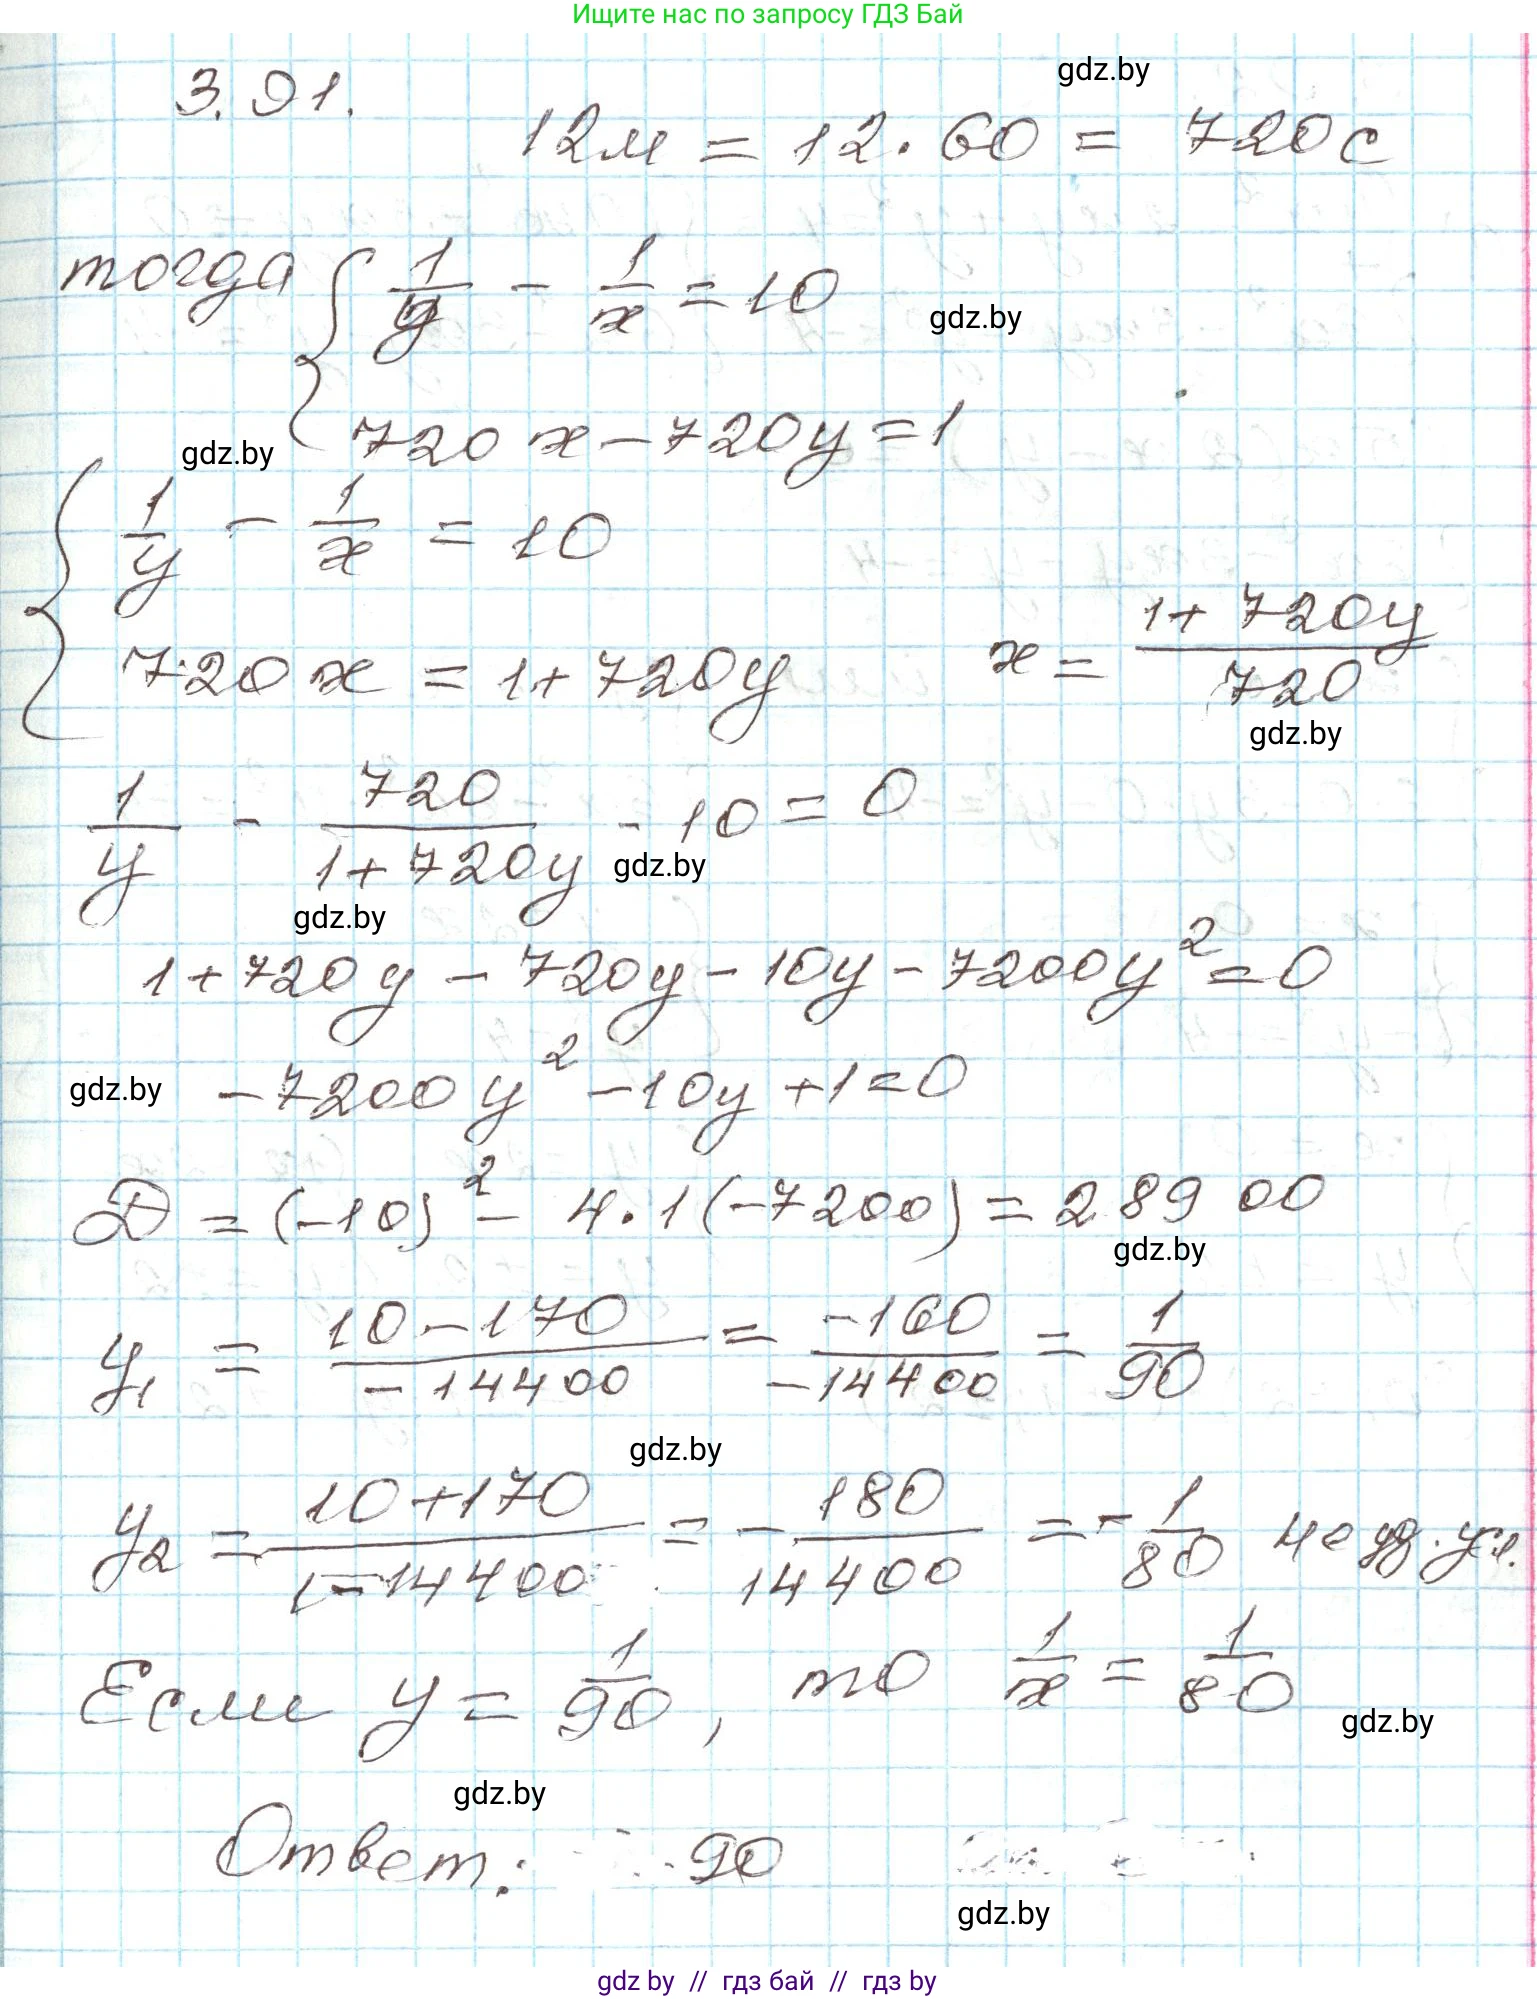 Ищите нас по запросу ГДЗ Бай
3.91.
gdz.by
12м = 12·60 = 720с
тогда { 1/y - 1/x = 10
gdz.by
720x - 720y = 1
gdz.by
{ 1/y - 1/x = 10
720x = 1 + 720y x = (1 + 720y)/720
gdz.by
1/y - 720/(1 + 720y) - 10 = 0
gdz.by
gdz.by
1 + 720y - 720y - 10y - 7200y² = 0
gdz.by
-7200y² - 10y + 1 = 0
D = (-10)² - 4·1(-7200) = 28900
gdz.by
y₁ = (10 - 170)/(-14400) = (-160)/(-14400) = 1/90
gdz.by
y₂ = (10 + 170)/(-14400) = - 180/14400 = - 1/80 не уд. ус.
Если y = 1/90, то 1/x = 1/80
gdz.by
gdz.by
Ответ: 90
gdz.by
gdz by // гдз бай // gdz by